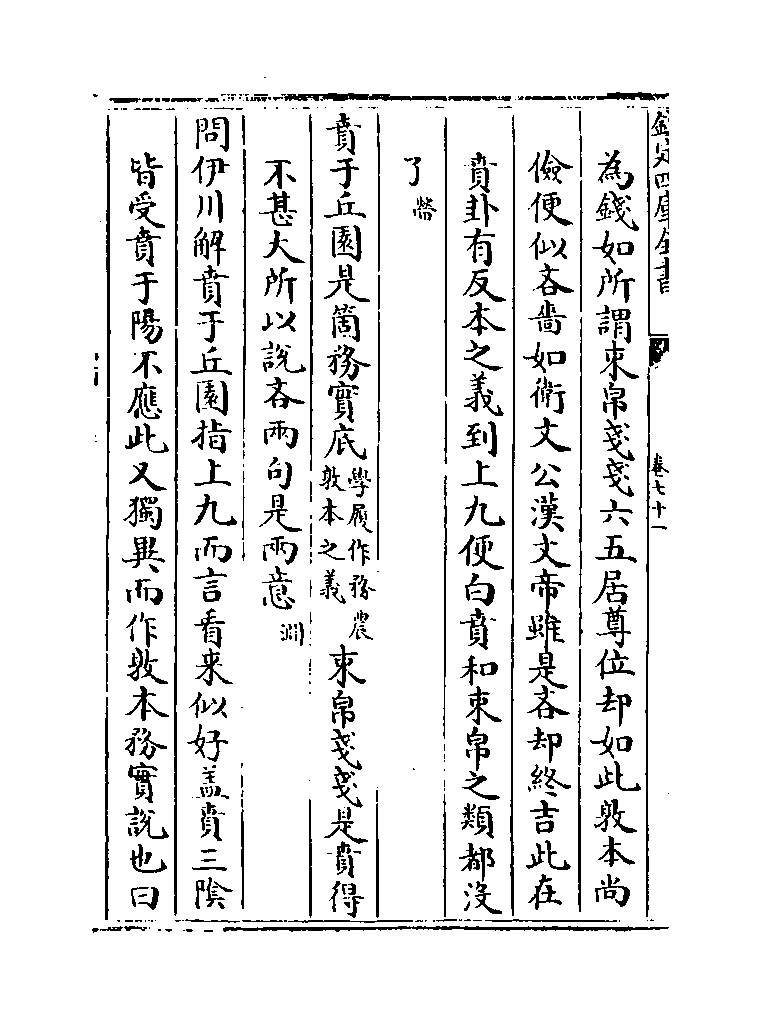 欽定四庫全書
卷七十一
為錢如所謂束帛戔戔六五居尊位却如此敦本尚
儉便似吝嗇如衛文公漢文帝雖是吝却終吉此在
賁卦有反本之義到上九便白賁和束帛之類都沒
了㽦
賁于丘園是箇務實底學履作務農敦本之義束帛戔戔是賁得
不甚大所以說吝兩句是兩意淵
問伊川解賁于丘園指上九而言看来似好盖賁三陰
皆受賁于陽不應此又獨異而作敦本務實說也曰